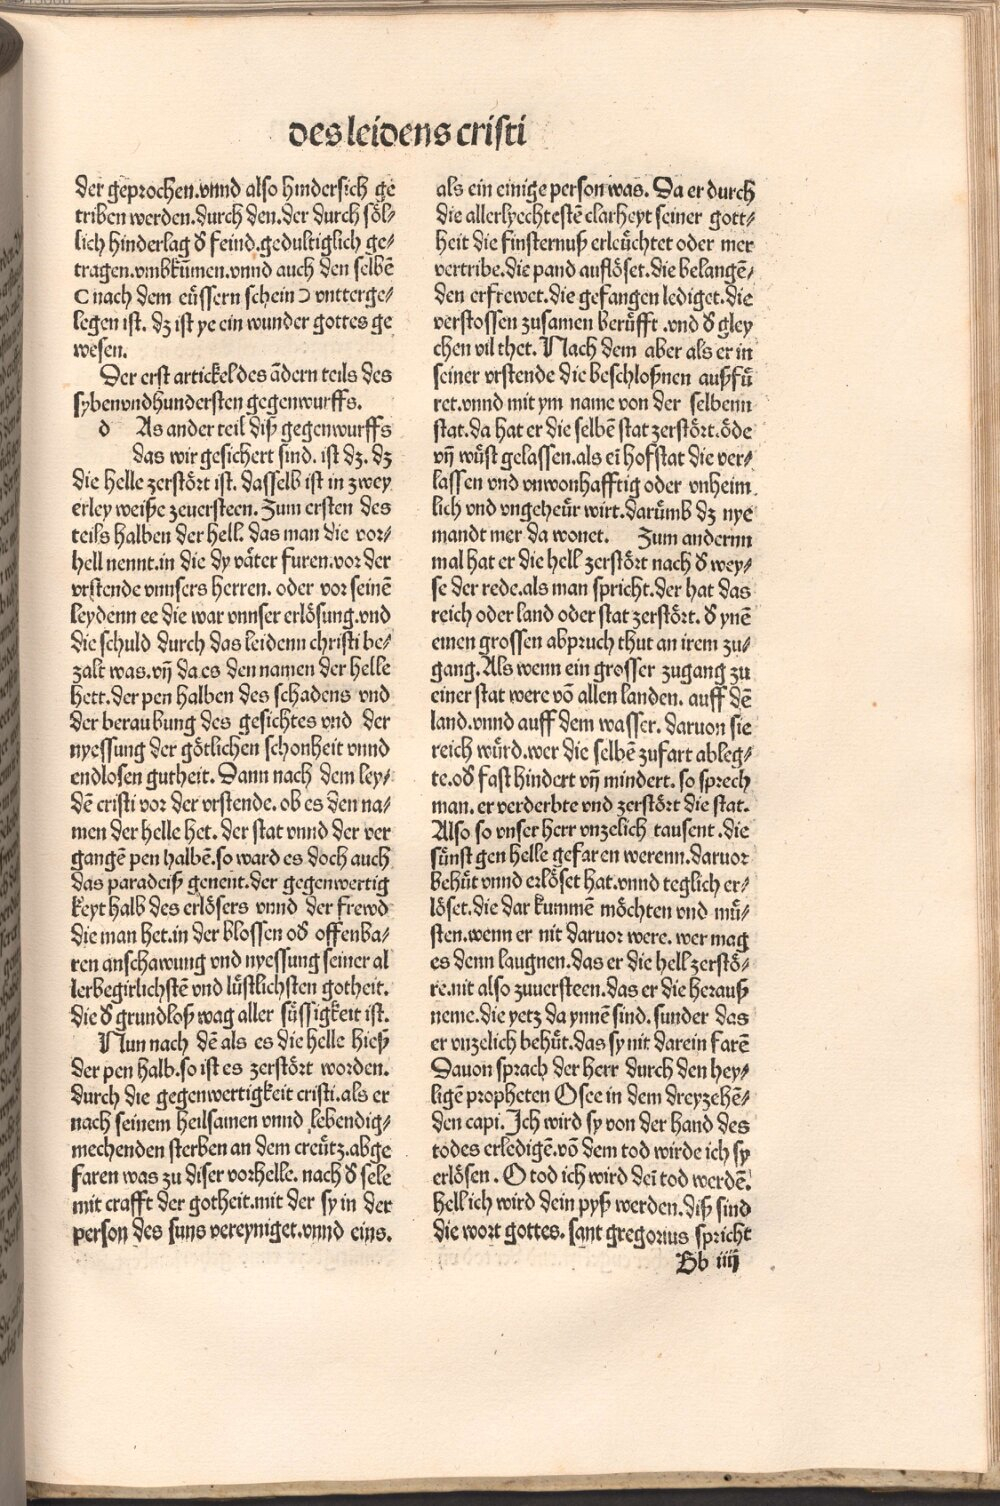 des leidens cristi
der geprochen.vnnd also hindersich ge
triben werden.durch den.der durch söl⸗
lich hinderlag đ feind.gedultiglich ge⸗
tragen.vmbkūmen.vnnd auch den selbē
(nach dem eüssern schein) vntterge⸗
legen ist. dz ist ye ein wunder gottes ge
wesen.
Der erst artickel des ādern teils des
sybenvndhundersten gegenwurffs.
d As ander teil diß gegenwurffs
das wir gesichert sind. ist dz. dz
die helle zerstört ist. dasselb ist in zwey
erley weiße zeuersteen. Zum ersten des
teils halben der hell. das man die vor⸗
hell nennt.in die dy väter furen.vor der
vrstende vnnsers herren. oder vor seinē
leydenn ee die war vnnser erlösung.vnd
die schuld durch das leidenn christi be⸗
zalt was.vn̄ da es den namen der helle
hett.der pen halben des schadens vnd
der beraubung des gesichtes vnd der
nyessung der götlichen schonheit vnnd
endlosen gutheit. Dann nach dem ley⸗
dē cristi vor der vrstende. ob es den na⸗
men der helle het. der stat vnnd der ver
gangē pen halbē.so ward es doch auch
das paradeiß genent.der gegenwertig
keyt halb des erlösers vnnd der frewd
die man het.in der blossen ođ offenba⸗
ren anschawung vnd nyessung seiner al
lerbegirlichstē vnd lüstlichsten gotheit.
die đ grundloß wag aller süssigkeit ist.
Nun nach dē als es die helle hieß
der pen halb.so ist es zerstört worden.
durch die gegenwertigkeit cristi.als er
nach seinem heilsamen vnnd lebendig⸗
mechenden sterben an dem creütz.abge
faren was zu diser vorhelle. nach đ sele
mit crafft der gotheit.mit der sy in der
person des suns vereyniget.vnnd eins.
als ein einige person was. Da er durch
die allerlyechtestē clarheyt seiner gott⸗
heit die finsternuß erleüchtet oder mer
vertribe.die pand auflöset.die belangē⸗
den erfrewet.die gefangen lediget.die
verstossen zusamen berüfft .vnd đ gley
chen vil thet. Nach dem aber als er in
seiner vrstende die beschloßnen außfü
ret.vnnd mit ym name von der selbenn
stat.da hat er die selbē stat zerstört.öde
vn̄ wüst gelassen.als eī hofstat die ver⸗
lassen vnd vnwonhafftig oder vnheim
lich vnd vngeheür wirt.darümb dz nye
mandt mer da wonet. Zum andernn
mal hat er die hell zerstört nach đ wey⸗
se der rede.als man spricht.der hat das
reich oder land oder stat zerstört. đ ynē
einen grossen abpruch thut an irem zu⸗
gang.Als wenn ein grosser zugang zu
einer stat were vō allen landen. auff dē
land.vnnd auff dem wasser. daruon sie
reich würd.wer die selbē zufart ableg⸗
te.ođ fast hindert vn̄ mindert. so sprech
man. er verderbte vnd zerstört die stat.
Also so vnser herr vnzelich tausent .die
sünst gen helle gefaren werenn.daruor
behüt vnnd erlöset hat.vnnd teglich er⸗
löset.die dar kummē möchten vnd mü⸗
sten.wenn er nit daruor were. wer mag
es denn laugnen.das er die hell zerstö⸗
re.nit also zuuersteen.das er die herauß
neme.die yetz da ynnē sind. sunder das
er vnzelich behüt.das sy nit darein farē
Dauon sprach der herr durch den hey⸗
ligē propheten Osee in dem dreyzehē⸗
den capi. Ich wird sy von der hand des
todes erledigē.vō dem tod wirde ich sy
erlösen. O tod ich wird deī tod werdē.
hell ich wird dein pyß werden.diß sind
die wort gottes. sant gregorius spricht
Bb iiij